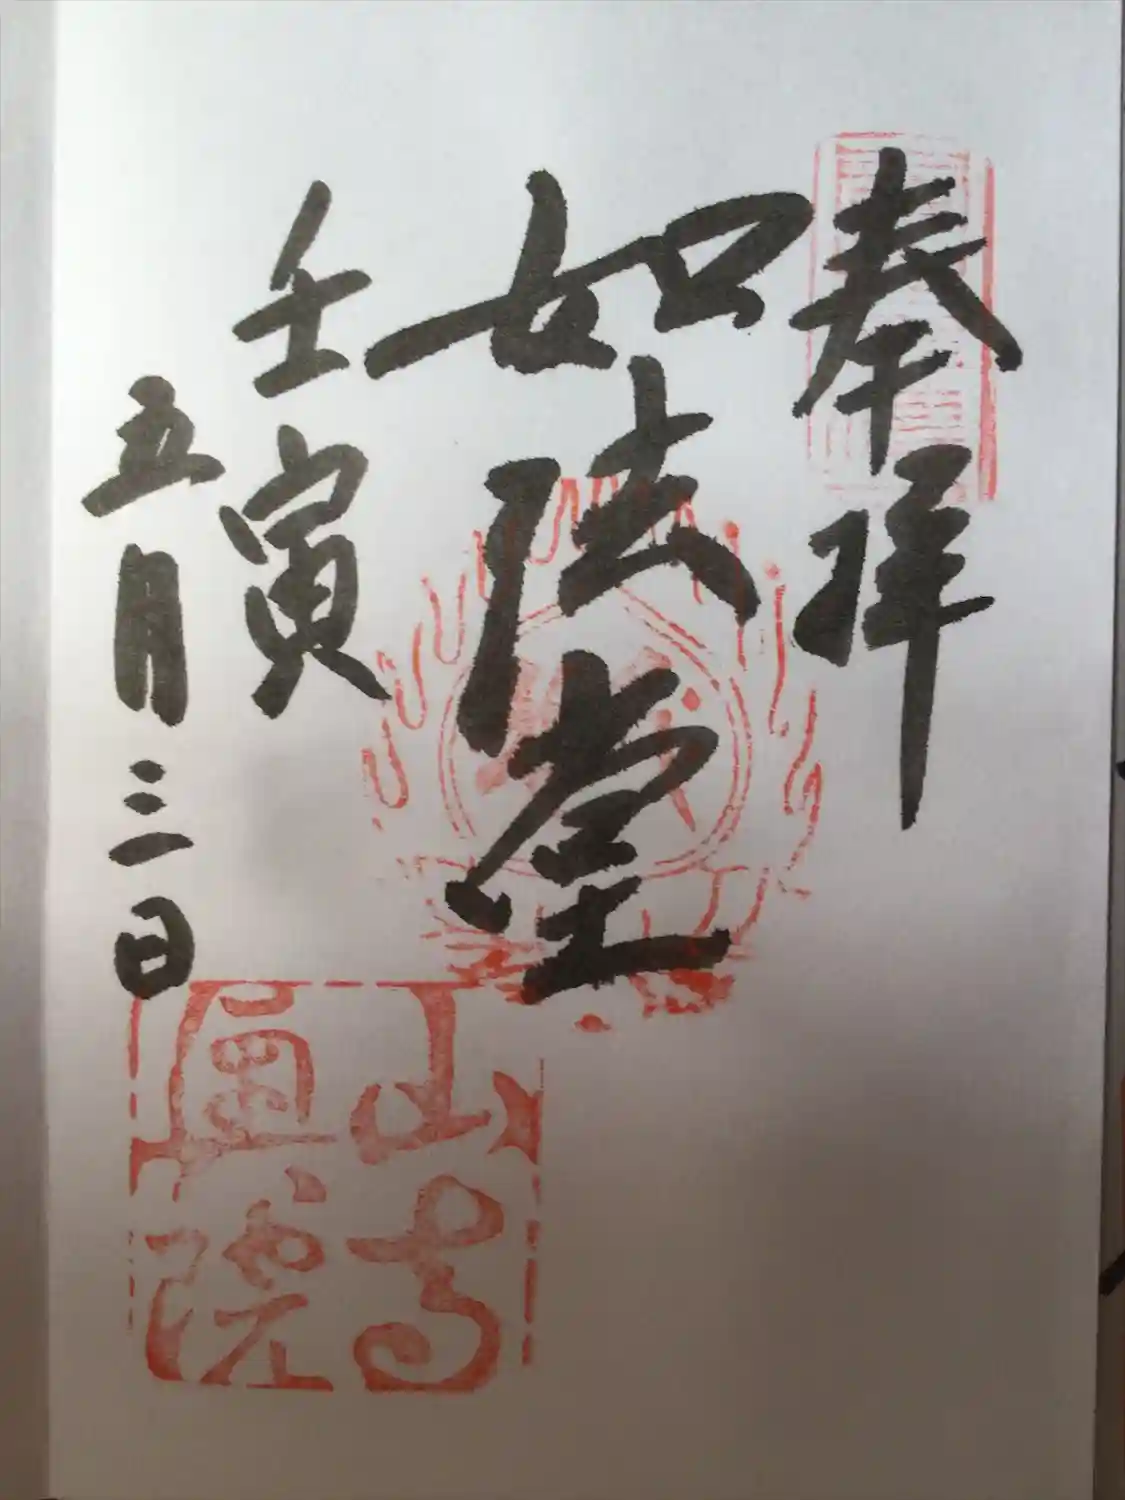 奉拝
如法堂
壬寅
五月三日
山寺
圓院